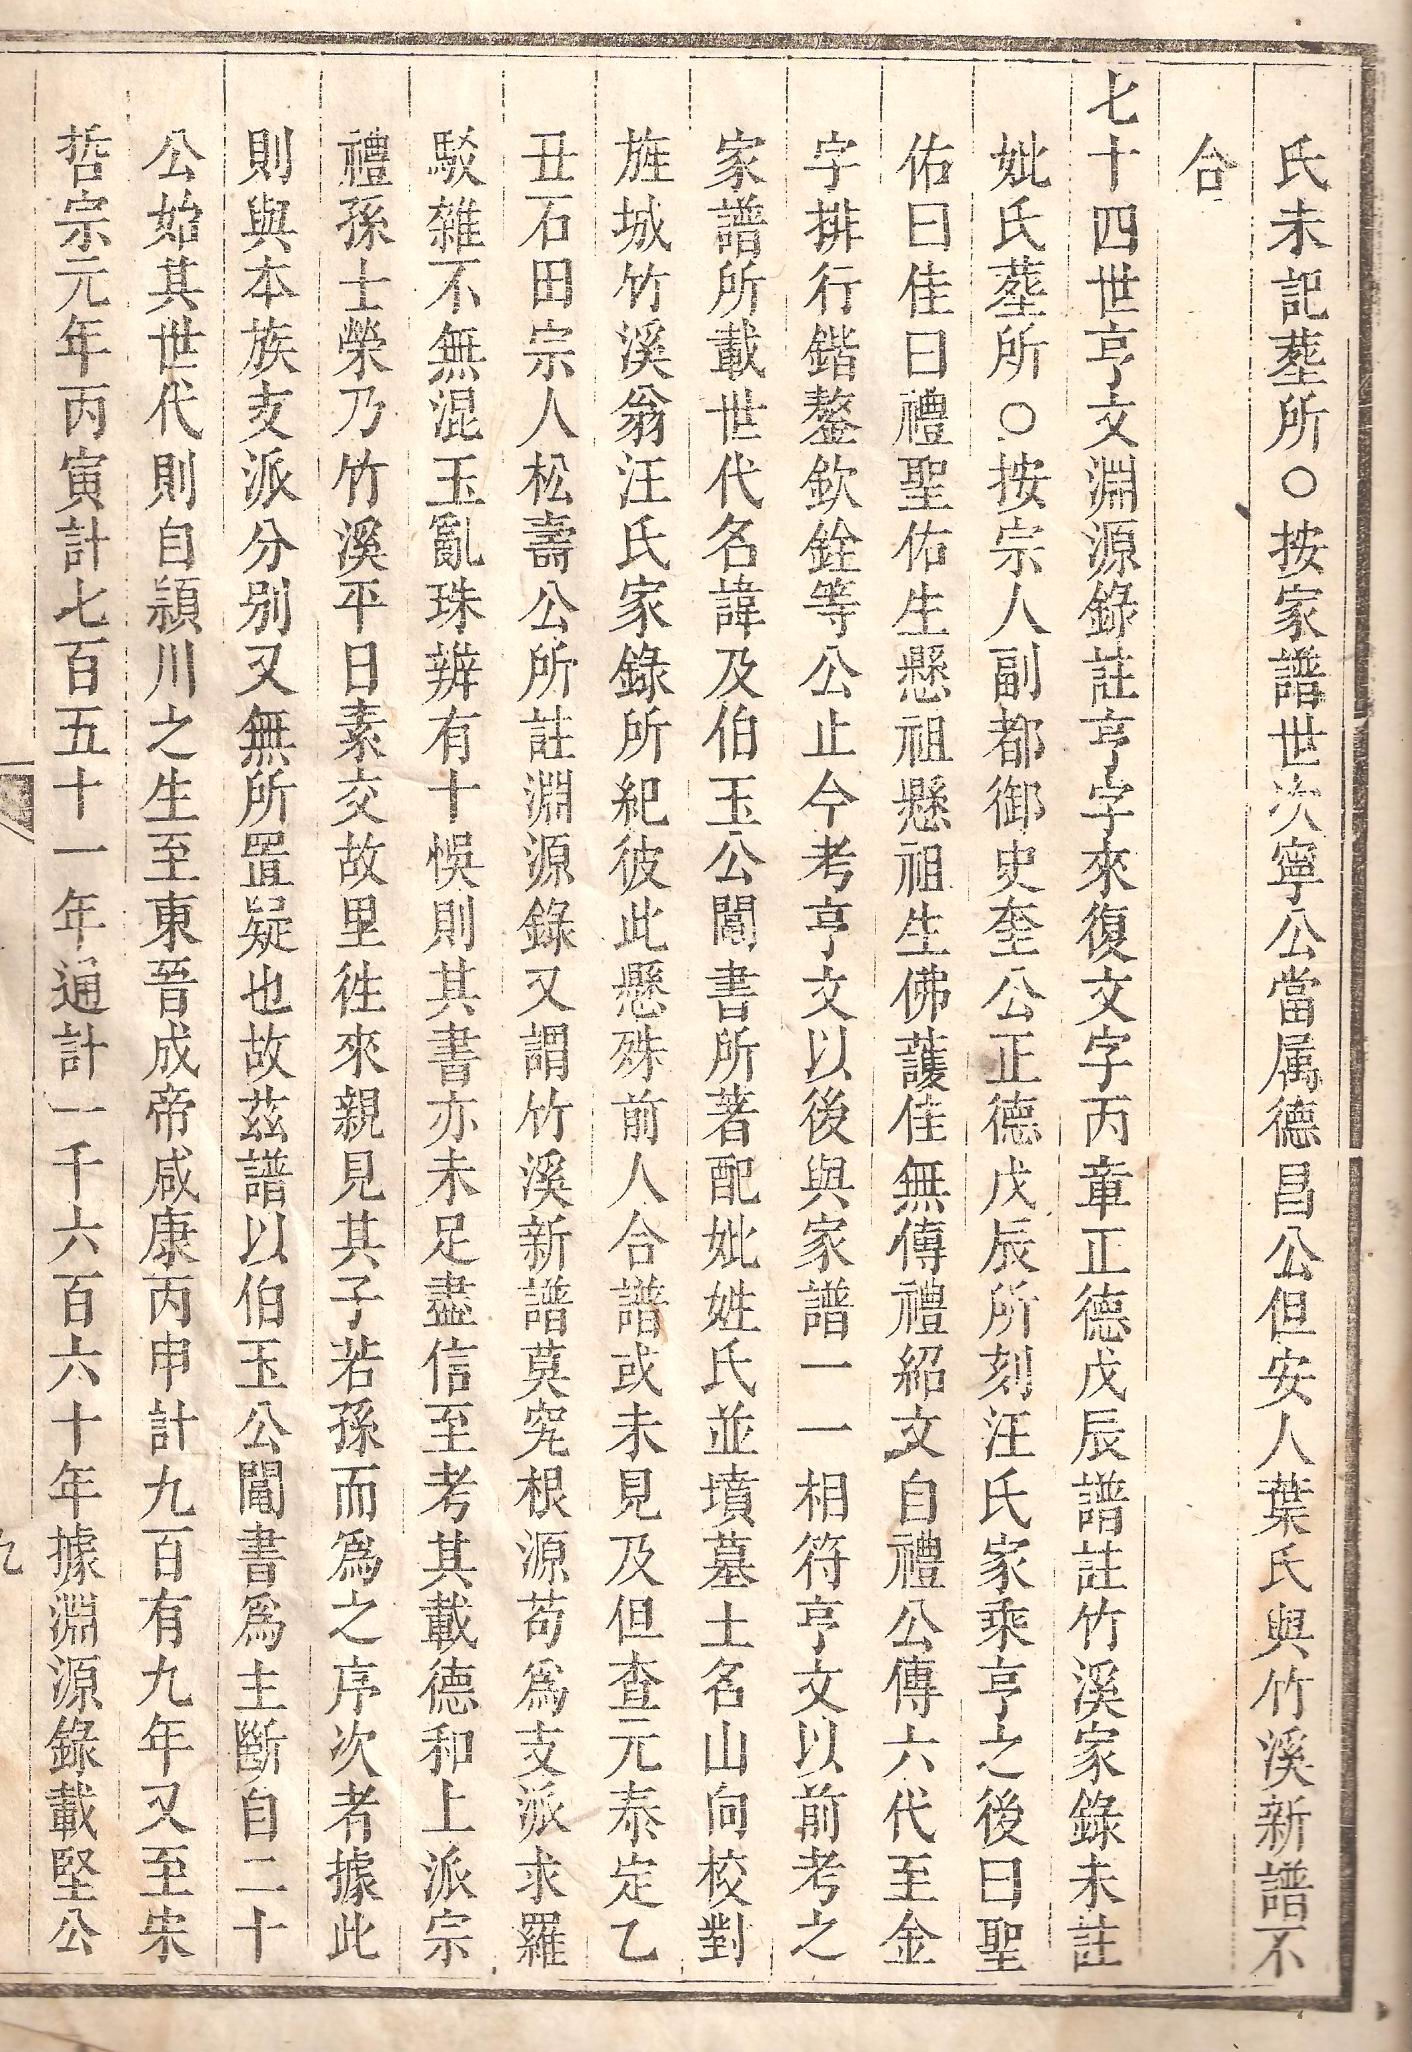 氏未記葬所○按家譜世次寧公當属德昌公但安人葉氏與竹溪新譜不
合
七十四世亨文淵源錄註亨字來復文字丙章正德戊辰譜註竹溪家錄未註
妣氏葬所○按宗人副都御史奎公正德戊辰所刻汪氏家乘亨之後曰聖
佑曰佳曰禮聖佑生懸祖懸祖生佛護佳無傳禮紹文自禮公傳六代至金
字排行鍇鏊欽銓等公止今考亨文以後與家譜一一相符亨文以前考之
家譜所載世代名諱及伯玉公闈書所著配妣姓氏並墳墓土名山向校對
旌城竹溪翁汪氏家錄所紀彼此懸殊前人合譜或未見及但查元泰定乙
丑石田宗人松壽公所註淵源錄又謂竹溪新譜莫究根源苟爲支派求羅
駁雜不無混玉亂珠辨有十悞則其書亦未足盡信至考其載德和上派宗
禮孫士榮乃竹溪平日素交故里徃來親見其子若孫而爲之序次者據此
則與本族支派分别又無所置疑也故茲譜以伯玉公闈書爲主斷自二十
公始其世代則自潁川之生至東晉成帝咸康丙申計九百有九年又至宋
哲宗元年丙寅計七百五十一年通計一千六百六十年據淵源錄載堅公
九